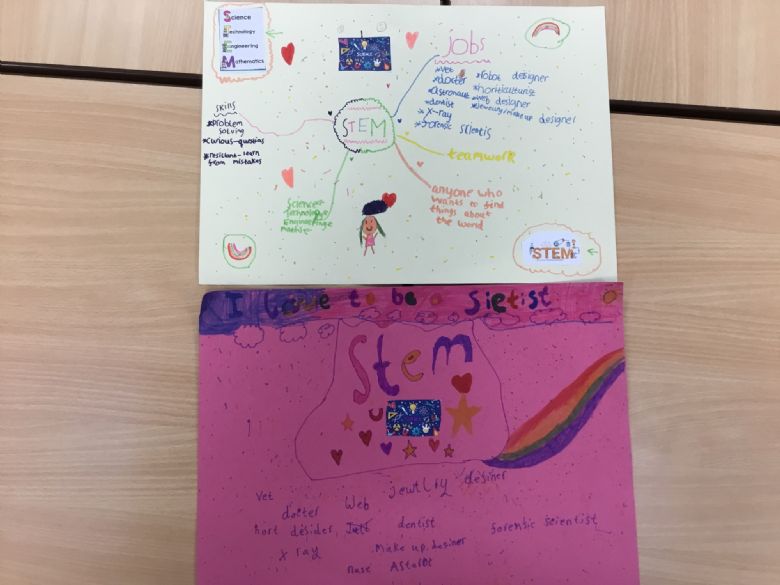 Science
Technology
Engineering
Mathematics
SCIENCE
jobs
*vet
*docter
*astronaut
*dentist
*x-ray
*forensic scientis
*robot designer
*horticulturist
*web designer
*jewelry/makeup designer
SKills
*problem
solving
*curious-questions
*resistant-learn
from mistakes
STEM
teamwork
anyone who
wants to find
things about
the world
Science
Technology
STEM
I love to be a Sietist
Stem
jewtlry desiner
Vet
docter
Web
hort desider
dentist
forensic scientist
x ray
Make up desiner
nuse